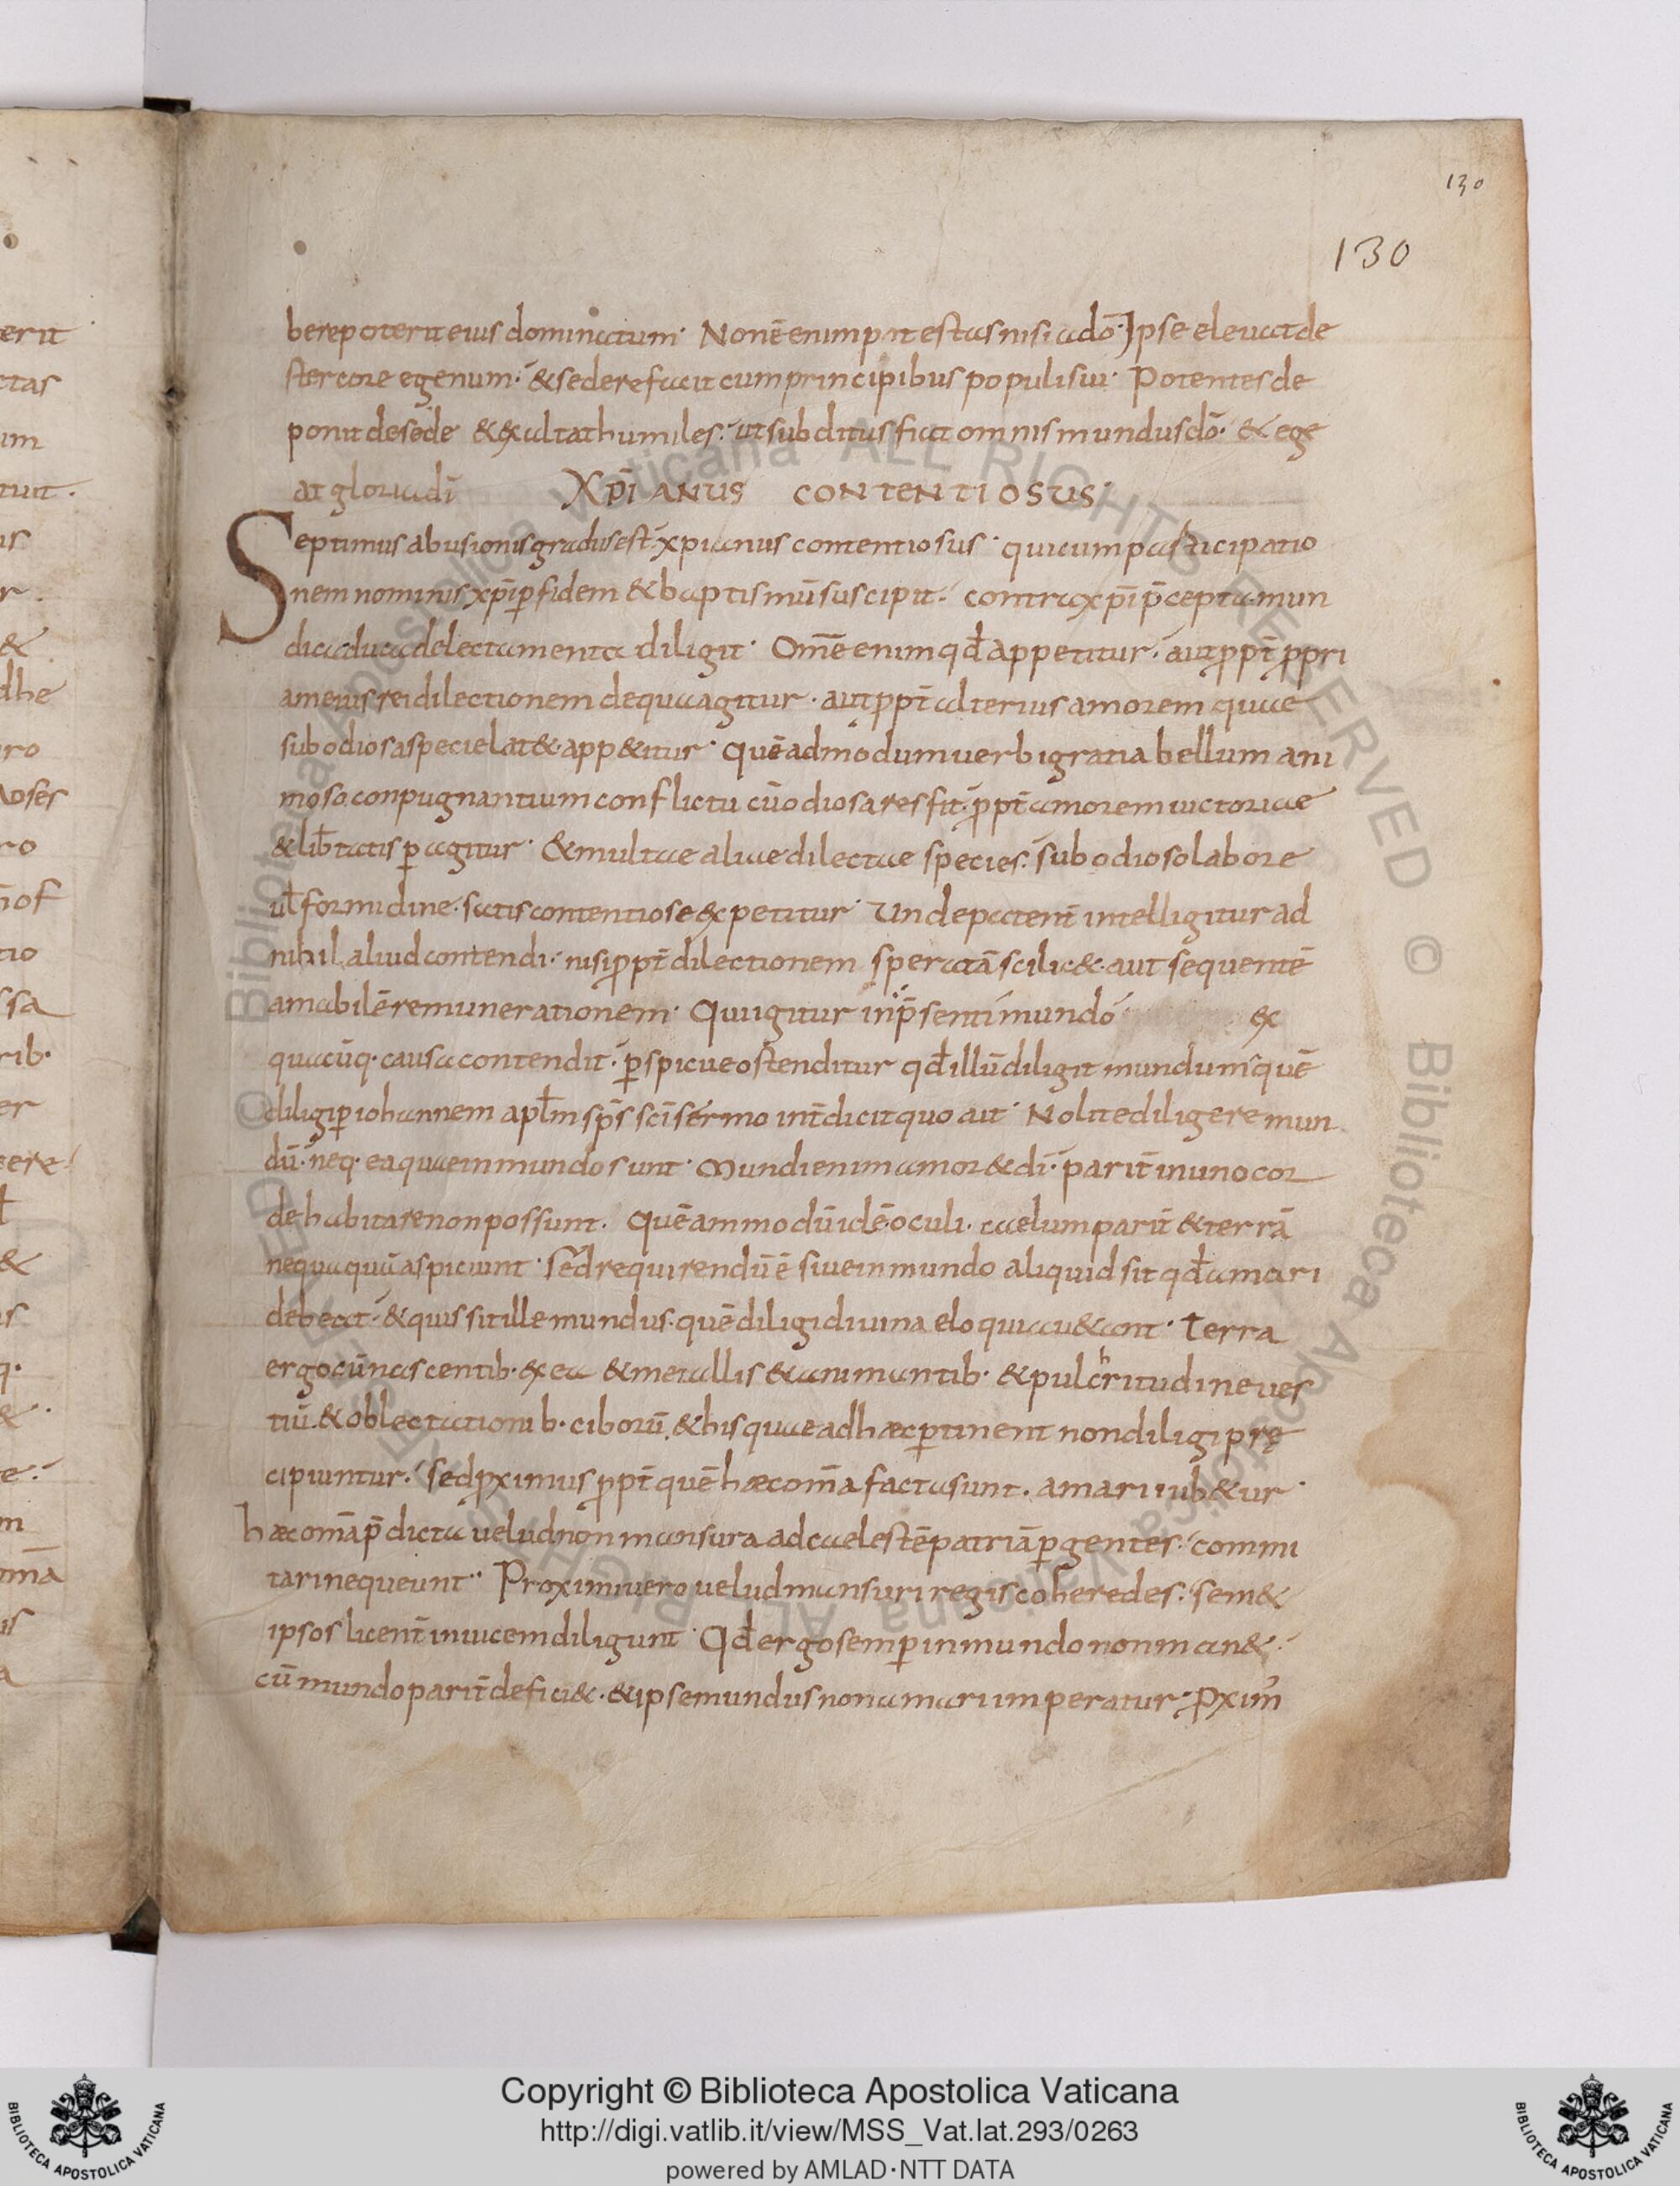 130
130
berepoterit eius dominatum· Non ē enim potestas nisi a dō· Ipse eleuat de
stercore egenum· & sedere facit cum principibus populi sui· Potentes de
ponit de sede & exaltat humiles· ut subditus fiat omnis mundus dō· & ege
at gloria dī XP̄IANUS CONTENTIOSUS·
Septimus abusionis gradus est xpianus contentiosus· qui cum participatio
nem nominis xp̄i ꝑ fidem & baptismū suscipit· contra xp̄i p̄cepta mun
di caduca delectamenta diligit· Om̄e enim qđ appetitur· aut ꝓpt̄ ꝓpri
am eius rei dilectionem de qua agitur· aut ꝓpt̄ alterius amorem quae
sub odiosa specie lat& app&itur· Quēadmodum uerbi gratia bellum ani
moso conpugnantium conflictu cū odiosa res sit· ꝓpt̄ amorem uictoriae
& lib̄tatis ꝑagitur· & multae aliae dilectae species· sub odioso labore
ul̄ formidine· satis contentiose expetitur· Unde patent̄ intelligitur ad
nihil aliud contendi· nisi ꝓpt̄ dilectionem speratā scilic&· aut sequentē
amabilē remunerationem· Qui igitur in p̄senti mundo ex
quacūq· causa contendit· ꝑspicue ostenditur qđ illū diligit mundum quē
diligi ꝑ iohannem apl̄m sp̄s sc̄i sermo int̄dicit quo ait· Nolite diligere mun
dū· neq· ea quae in mundo sunt· Mundi enim amor & dī· parit̄ in uno cor
de habitare non possunt· Quēammodū idē oculi· caelum parit̄ & terrā
nequaquā aspiciunt· Sed requirendū ē siue in mundo aliquid sit qđ amari
debeat· & quis sit ille mundus· quē diligi diuina eloquia u&ant· Terra
ergo cū nascentib· ex ea & metallis & animantib· & pulchritudine ues
tiū· & oblectationib· ciborū· & his quae ad hæc ꝑtinent non diligi prę
cipiuntur· sed ꝓximus ꝓpt̄ quē hæc om̄a facta sunt· amari iub&ur·
hæc om̄a p̄dicta uelud non mansura ad caelestē patriā ꝑgentes· commi
tari nequeunt·· Proximi uero uelud mansuri regis coheredes· sem&
ipsos licent̄ inuicem diligunt· Qđ ergo semꝑ in mundo non man&·
cū mundo parit̄ defici&· & ipse mundus non amari imperatur· ꝓxim̄
Copyright © Biblioteca Apostolica Vaticana
http://digi.vatlib.it/view/MSS_Vat.lat.293/0263
powered by AMLAD·NTT DATA